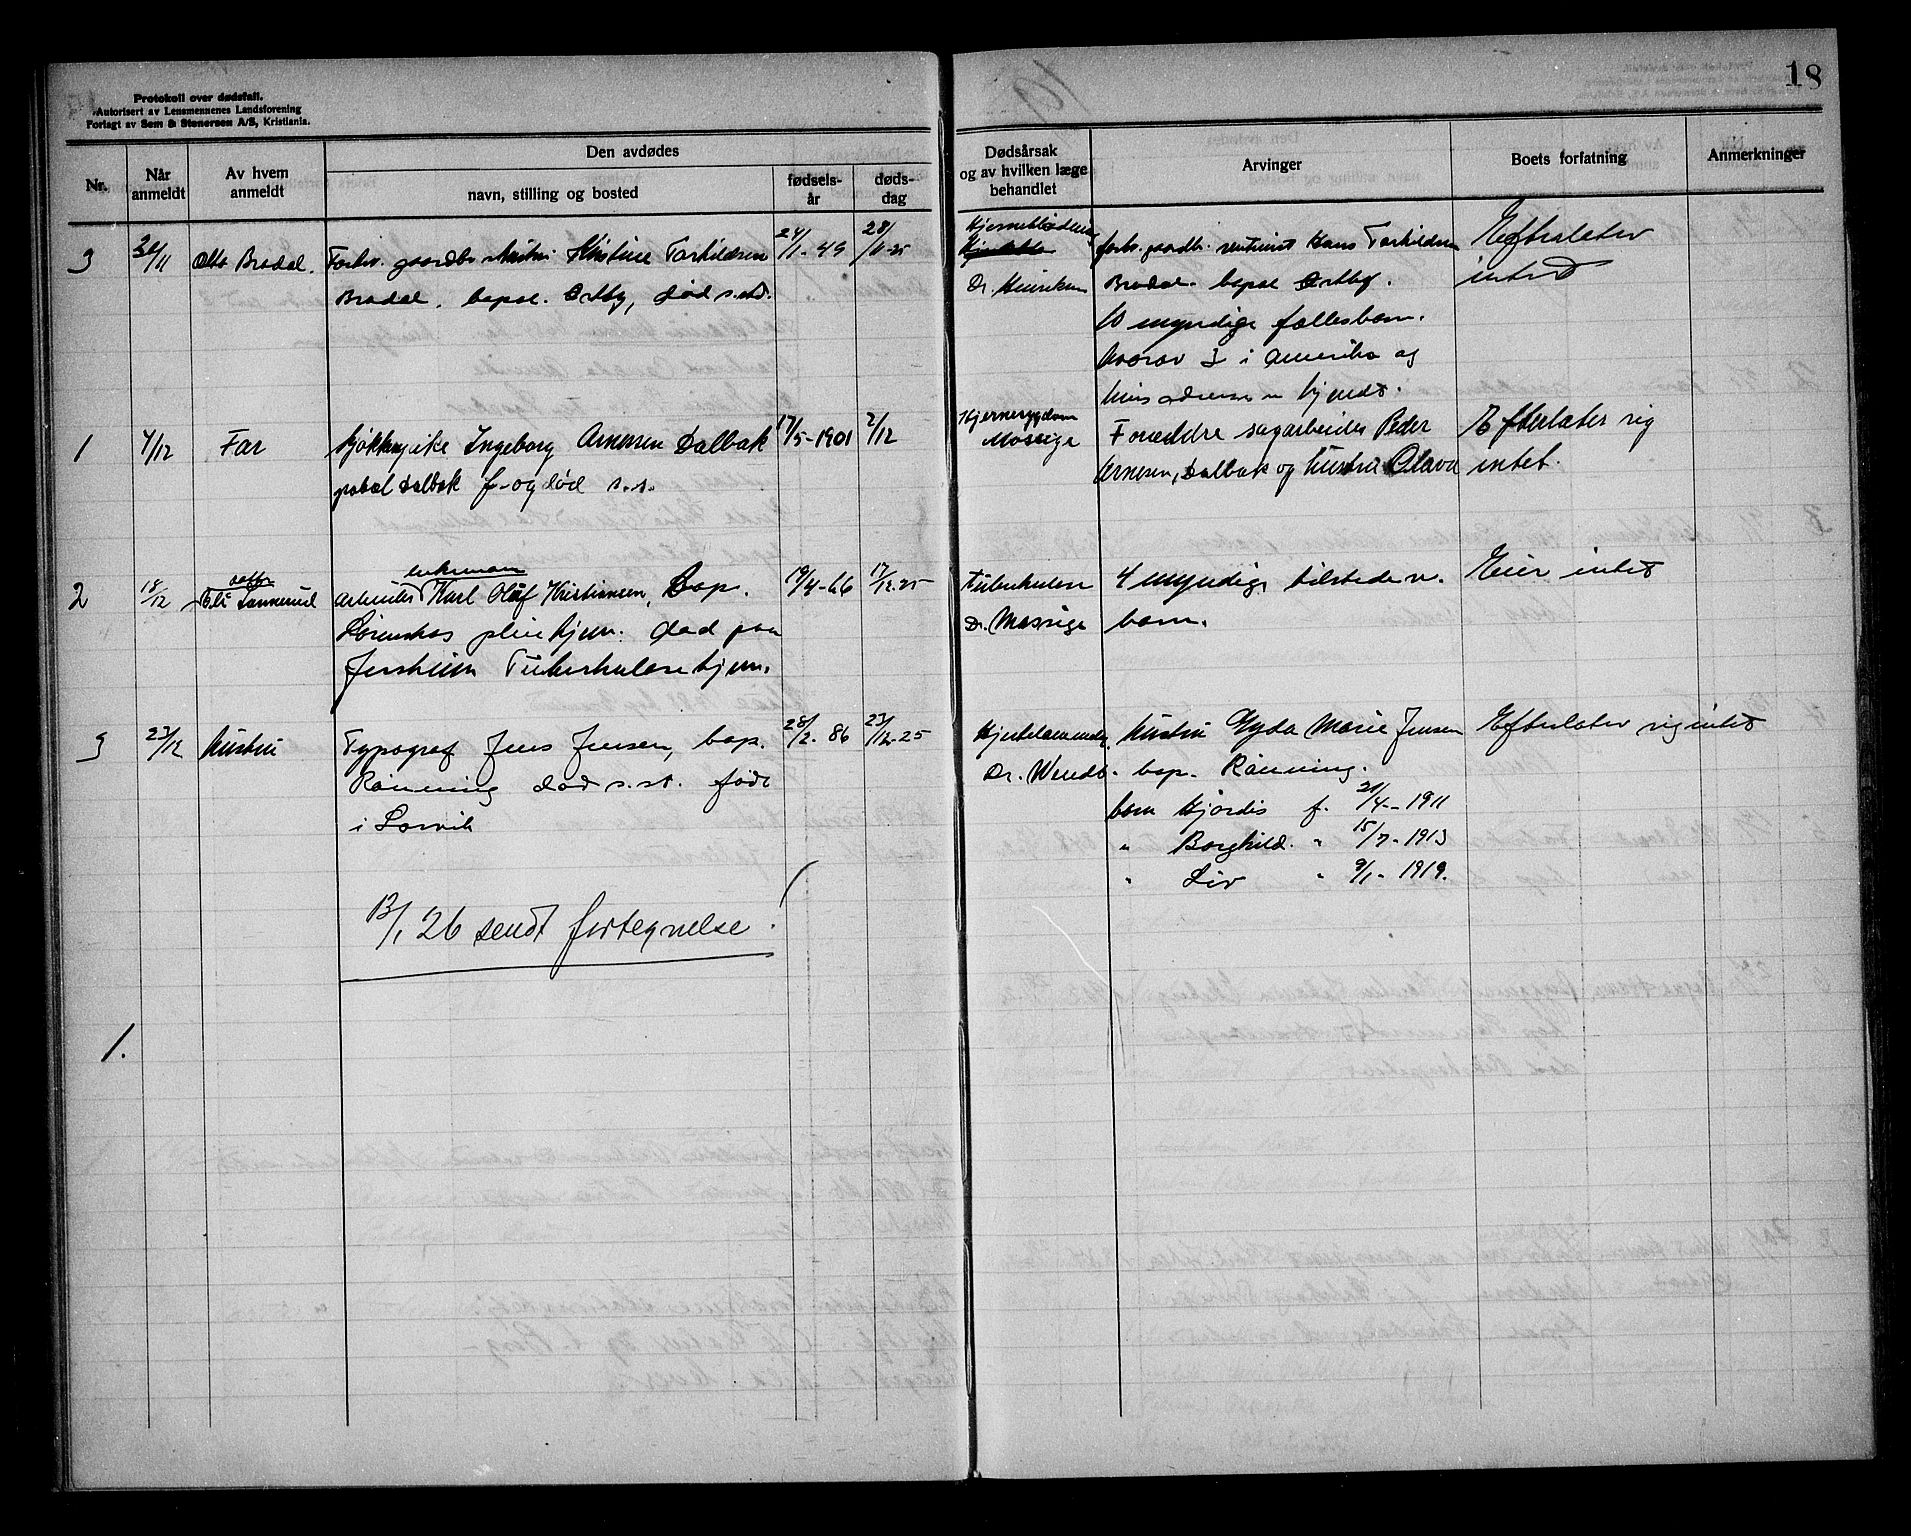 Protokoll over dødsfall.
Autorisert av Lensmennenes Landsforening
Forlagt av Sem & Stenersen A/S, Kristiania.
18
Nr.
Når anmeldt
Av hvem anmeldt
Den avdødes
navn, stilling og bosted
fødsels-år
døds-dag
Dødsårsak og av hvilken læge behandlet
Arvinger
Boets forfatning
Anmerkninger
3
Otto Brodal.
Forhv. gaardbr. hustru Kristine Torkildsen
24/1-49
28/11-25
Brodal. bopæl Ortby, død s.std.
Hjerneblødning
Dr. Henriksen
forhv. gaardbr. Hans Torkildsen
Brodal. bopæl Ortby.
10 myndige fællesbarn.
hvorav 3 i Amerika og
hvis adresse er kjendt.
Efterlater
intet
1
4/12
Far
Kjøkkenpike Ingeborg Arnesen Dalbak
17/5-1901
2/12
Dalbak f. og død s.s.
Hjernesygdom
Massige
Foreldre sagarbeider Peder
Arnesen, Dalbak og hustru Olava
Efterlater sig
intet.
2
18/12
enkeman
arbeider Karl Oluf Kristiansen, Bop.
19/4-66
17/12-25
Lørenskog pleiehjem. død paa
Jessheim Tuberkulosehjem.
Tuberkulose
Dr. Massige
4 myndige tilstedevr.
barn.
Eier intet
3
23/12
hustru
Typograf Jens Jensen, bop.
28/2-86
23/12-25
Rønning død s.st. født
i Larvik
Dr. Wendt.
Hustru Gyda Marie Jensen
bop. Rønning.
barn Hjørdis f. 21/4-1911
" Borghild. " 15/7-1913
" Liv " 9/1-1919.
Efterlater sig intet
13/1 26 sendt fortegnelse.
1.